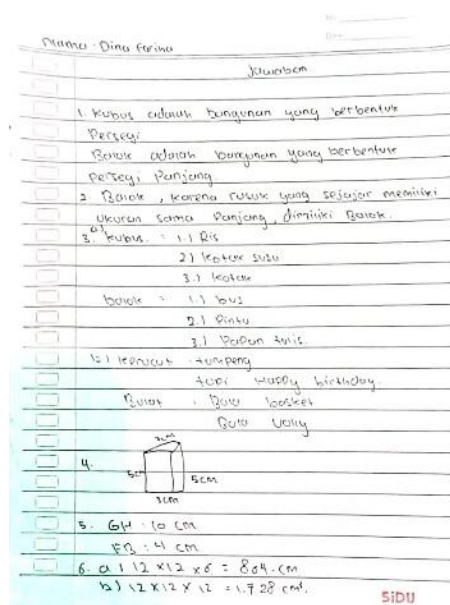 Nama : Dina Farina
Jawaban
1. Kubus adalah bangunan yang berbentuk
Persegi
Balok adalah bangunan yang berbentuk
Persegi Panjang.
2. Balok, karena rusuk yang sejajar memiliki
ukuran sama Panjang, dimiliki Balok.
3. a) Kubus : 1.)
2) kotak susu
3.) kotak
balok : 1.) bus
2.) Pintu
3.) Papan tulis.
b) kerucut : tumpeng
topi Happy birthday.
Bulat : Bola basket
Bola Volly
4.
5cm
5cm
3cm
5. GH : 10 cm
FB : 4 cm
6. a) 12 x 12 x 6 = 864 cm
b) 12 x 12 x 12 = 1.728 cm².
SiDU